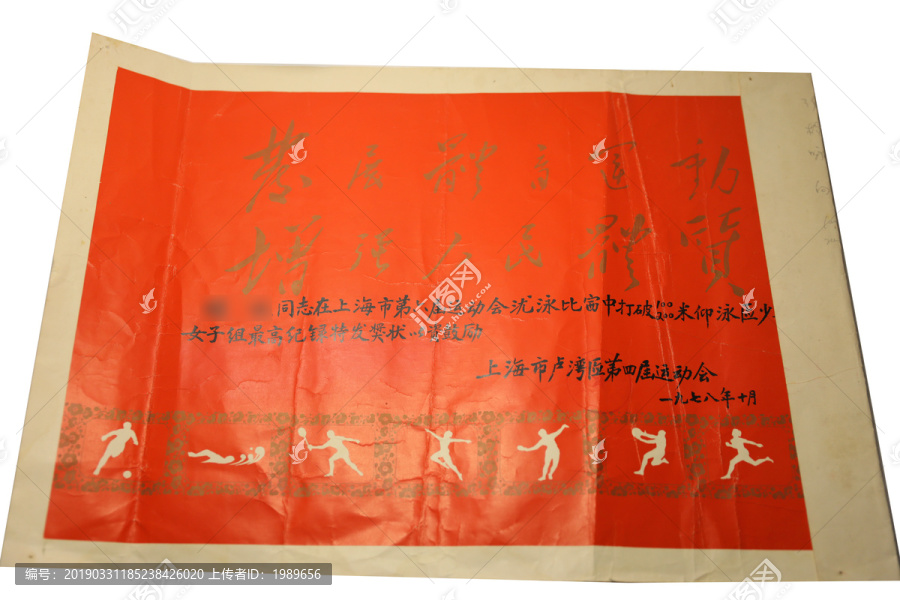 發展體育運動
增强人民體質
同志在上海市第 届运动会 泳比 中打破100 200米仰泳区少
女子组最高纪录特发奖状 鼓励
上海市卢湾区第四届运动会
一九七八年十月
编号:20190331185238426020 上传者ID:1989656